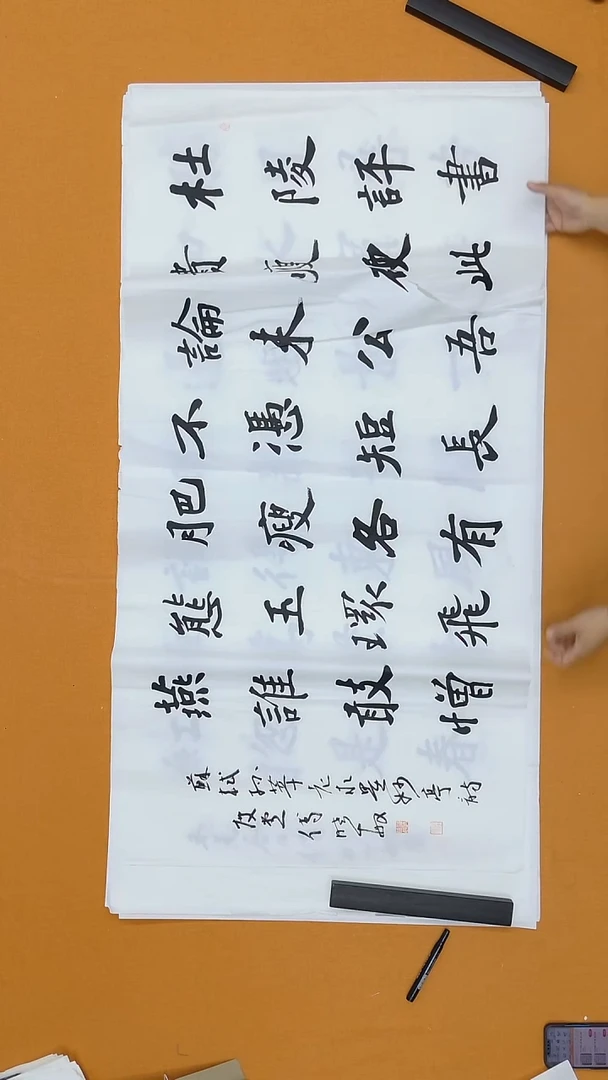 杜陵評書
貴瘦硬此
論未公吾
不憑短長
肥瘦各有
態玉環飛
燕誰敢憎
蘇軾孫莘老求墨妙亭詩